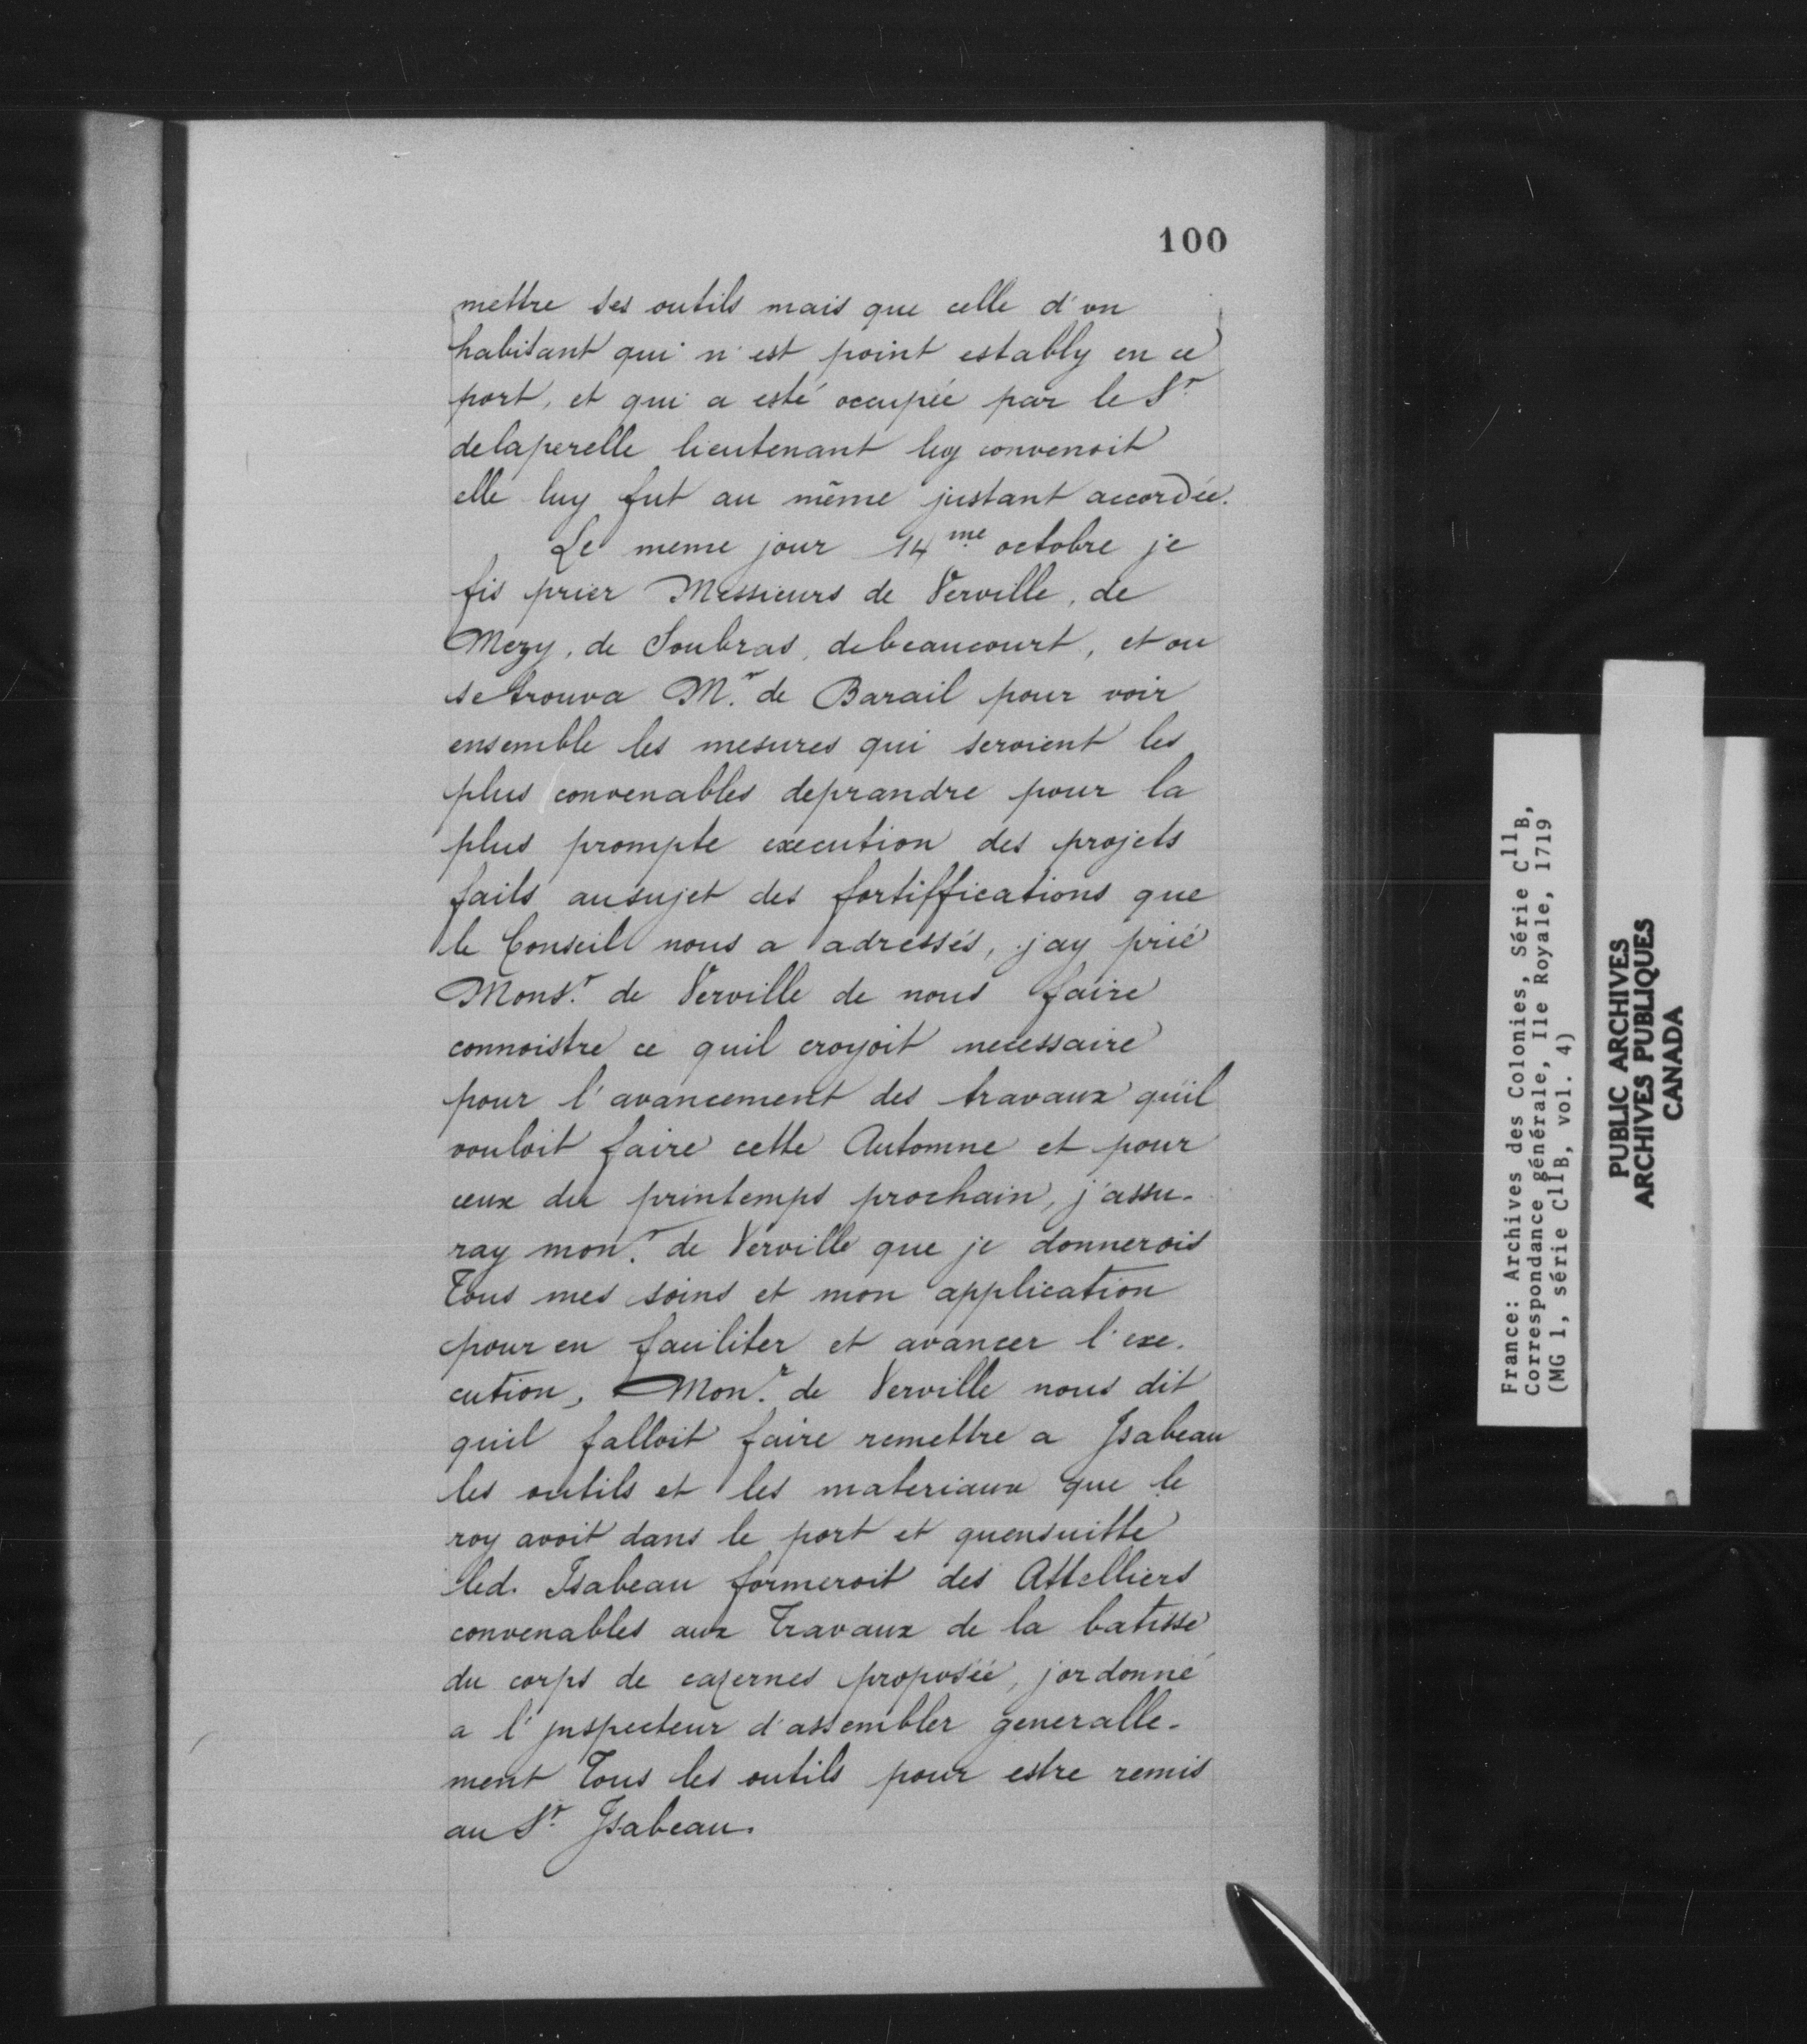 100
mettre ses outils mais que celle d'un
habitant qui n'est point estably en ce
port, et qui a esté occupée par le Sr.
delaperelle lieutenant luy convenoit
elle luy fut au même jnstant accordée.
Le meme jour 14me octobre je
fis prier Messieurs de Verville, de
Mezy, de Soubras, debeaucourt, et ou
se trouva Mr. de Barail pour voir
ensemble les mesures qui seroient les
plus convenables deprandre pour la
plus prompte execution des projets
faits ausujet des fortiffications que
le Conseil nous a adressés, jay prié
Monsr. de Verville de nous faire
connoistre ce quil croyoit necessaire
pour l'avancement des travaux qu'il
vouloit faire cette Automne et pour
ceux du printemps prochain, j'assu-
ray monr. de Verville que je donnerois
Tous mes soins et mon application
pour en faciliter et avancer l'exe-
cution, Monr. de Verville nous dit
quil falloit faire remettre a Jsabeau
les outils et les materiaux que le
roy avoit dans le port et quensuitte
led. Isabeau formeroit des Attelliers
convenables aux Travaux de la batisse
du corps de casernes proposée, jordonné
a l'jnspecteur d'assembler generalle-
ment Tous les outils pour estre remis
au Sr. Jsabeau.
France: Archives des Colonies, Série C11B,
Correspondance générale, Ile Royale, 1719
(MG 1, série C11B, vol. 4)
PUBLIC ARCHIVES
ARCHIVES PUBLIQUES
CANADA